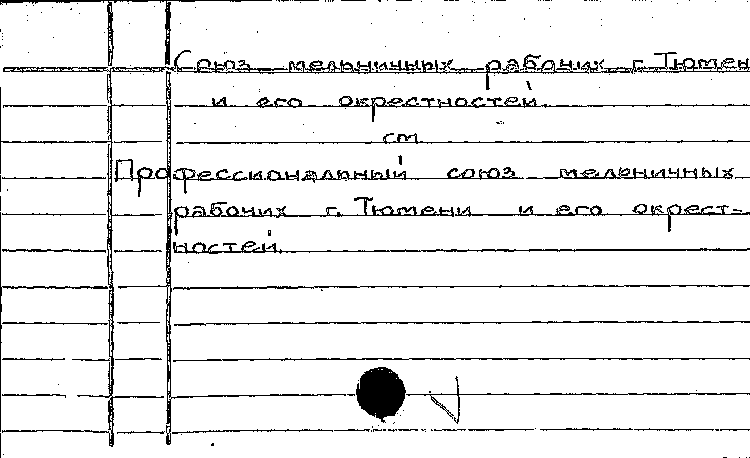 Союз мельничных рабочих г. Тюмен
и его окрестностей.
см
Профессиональный союз мельничных
рабочих г. Тюмени и его окрест-
ностей.